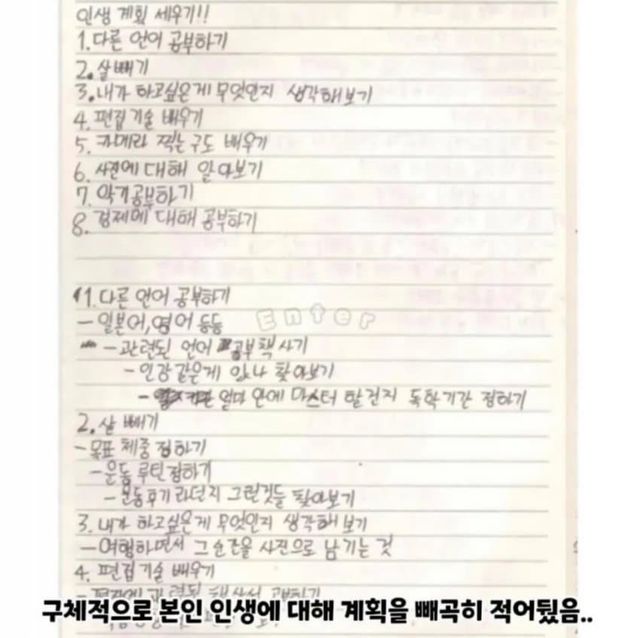 인생 계획 세우기!!
1. 다른 언어 공부하기
2. 살 빼기
3. 내가 하고싶은게 무엇인지 생각해보기
4. 편집 기술 배우기
5. 카메라 찍는 구도 배우기
6. 사진에 대해 알아보기
7. 악기공부하기
8. 경제에 대해 공부하기
1. 다른 언어 공부하기
- 일본어, 영어 등등
Enter
- 관련된 언어 공부책 사기
- 인강같은게 있나 찾아보기
- 얼마 안에 마스터 할건지 독학기간 정하기
2. 살 빼기
- 목표 체중 정하기
- 운동 루틴정하기
- 운동후기라던지 그런것들 찾아보기
3. 내가 하고싶은게 무엇인지 생각해보기
- 여행하면서 그순간을 사진으로 남기는 것
4. 편집 기술 배우기
구체적으로 본인 인생에 대해 계획을 빼곡히 적어뒀음..